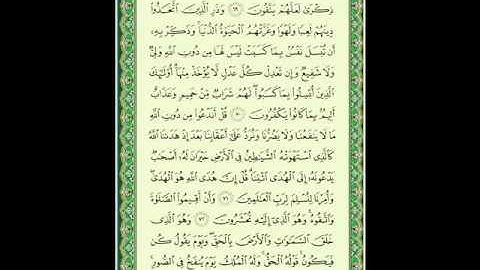 ذِكْرَىٰ لَعَلَّهُمْ يَتَّقُونَ ٦٩ وَذَرِ ٱلَّذِينَ ٱتَّخَذُوا۟
دِينَهُمْ لَعِبًا وَلَهْوًا وَغَرَّتْهُمُ ٱلْحَيَوٰةُ ٱلدُّنْيَا ۚ وَذَكِّرْ بِهِۦٓ
أَن تُبْسَلَ نَفْسٌۢ بِمَا كَسَبَتْ لَيْسَ لَهَا مِن دُونِ ٱللَّهِ وَلِىٌّ
وَلَا شَفِيعٌ وَإِن تَعْدِلْ كُلَّ عَدْلٍ لَّا يُؤْخَذْ مِنْهَآ ۗ أُو۟لَٰٓئِكَ
ٱلَّذِينَ أُبْسِلُوا۟ بِمَا كَسَبُوا۟ ۖ لَهُمْ شَرَابٌ مِّنْ حَمِيمٍ وَعَذَابٌ
أَلِيمٌۢ بِمَا كَانُوا۟ يَكْفُرُونَ ٧٠ قُلْ أَنَدْعُوا۟ مِن دُونِ ٱللَّهِ
مَا لَا يَنفَعُنَا وَلَا يَضُرُّنَا وَنُرَدُّ عَلَىٰٓ أَعْقَابِنَا بَعْدَ إِذْ هَدَىٰنَا ٱللَّهُ
كَٱلَّذِى ٱسْتَهْوَتْهُ ٱلشَّيَٰطِينُ فِى ٱلْأَرْضِ حَيْرَانَ لَهُۥٓ أَصْحَٰبٌ
يَدْعُونَهُۥٓ إِلَى ٱلْهُدَى ٱئْتِنَا ۗ قُلْ إِنَّ هُدَى ٱللَّهِ هُوَ ٱلْهُدَىٰ ۖ
وَأُمِرْنَا لِنُسْلِمَ لِرَبِّ ٱلْعَٰلَمِينَ ٧١ وَأَنْ أَقِيمُوا۟ ٱلصَّلَوٰةَ
وَٱتَّقُوهُ ۚ وَهُوَ ٱلَّذِىٓ إِلَيْهِ تُحْشَرُونَ ٧٢ وَهُوَ ٱلَّذِى
خَلَقَ ٱلسَّمَٰوَٰتِ وَٱلْأَرْضَ بِٱلْحَقِّ ۖ وَيَوْمَ يَقُولُ كُن
فَيَكُونُ ۚ قَوْلُهُ ٱلْحَقُّ ۚ وَلَهُ ٱلْمُلْكُ يَوْمَ يُنفَخُ فِى ٱلصُّورِ ۚ